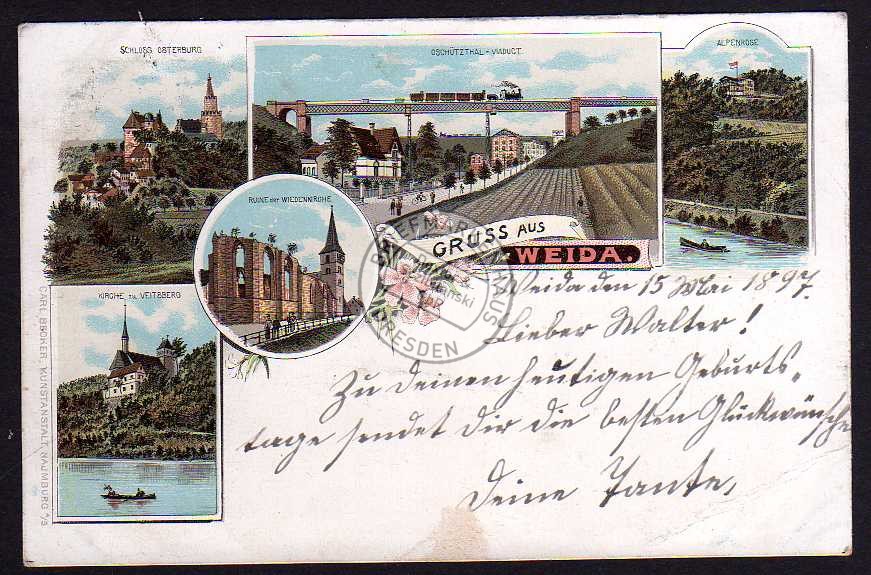 SCHLOSS OSTERBURG
OSCHÜTZTHAL-VIADUCT
ALPENROSE
RUINE DER WIEDENKIRCHE
GRUSS AUS
WEIDA.
KIRCHE ZU VEITSBERG
CARL BECKER, KUNSTANSTALT, NAUMBURG A/S
Weida den 15 Mai 1897.
Lieber Walter!
Zu deinen heutigen Geburts-
tage sendet dir die besten Glückwünsche
Deine Tante,
DRESDEN